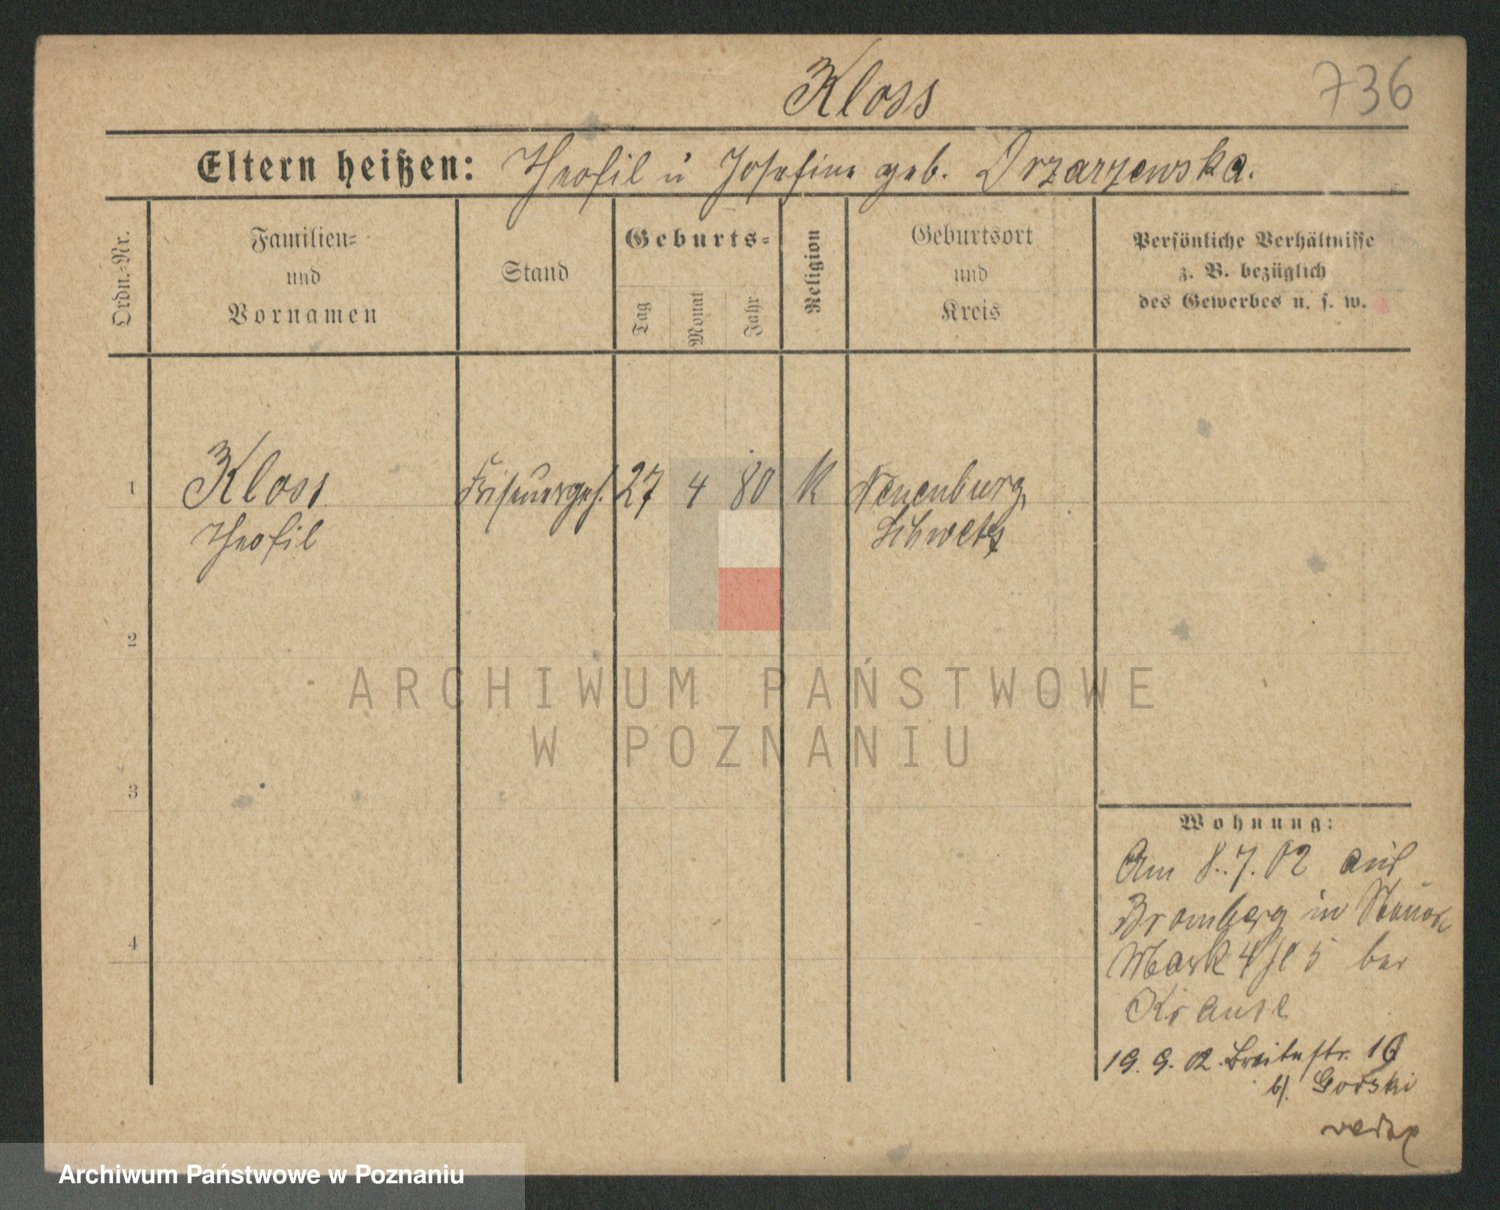 Kloss
736
Eltern heißen: Theofil u Josefine geb. Orzarzewska.
Ordn.-Nr.
Familien-
und
Vornamen
Stand
Geburts-
Tag
Monat
Jahr
Religion
Geburtsort
und
Kreis
Persönliche Verhältnisse
z. B. bezüglich
des Gewerbes u. s. w.
1 Kloss Friseurgeh. 27 4 80 K Neuenburg
Theofil Schwetz
2
ARCHIWUM PAŃSTWOWE
W POZNANIU
3
Wohnung:
Am 8.7.02 aus
Bromberg in
4
Mark 5 bei
Krause
19.9.02. Breitestr. 10
b/. Gorski
Archiwum Państwowe w Poznaniu